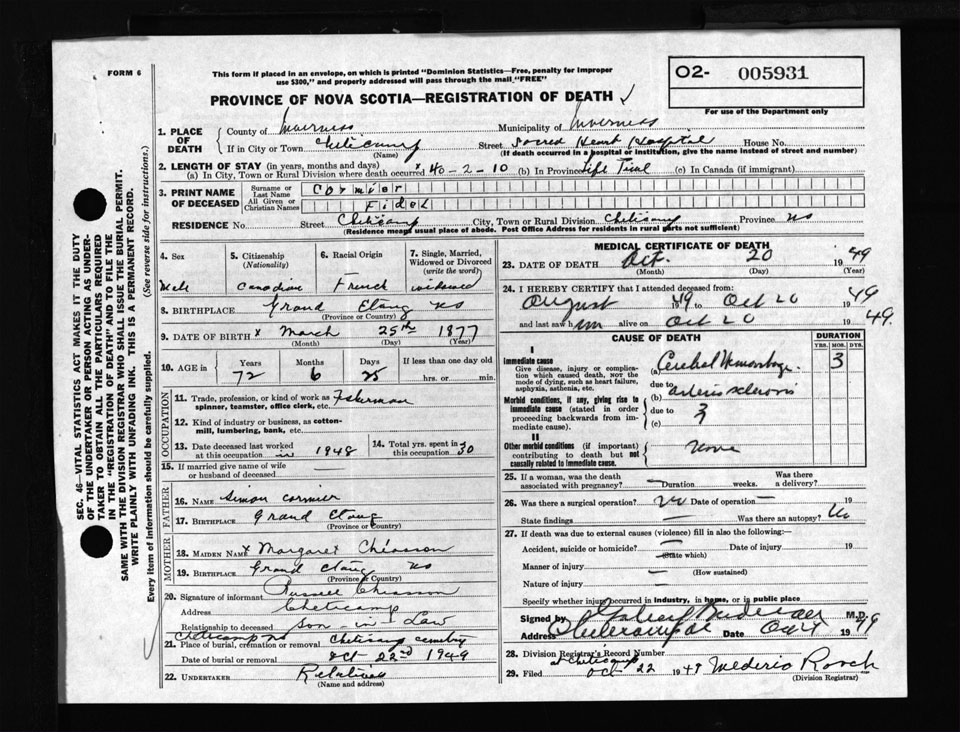 FORM 6
This form if placed in an envelope, on which is printed "Dominion Statistics—Free, penalty for improper
use $300," and properly addressed will pass through the mail "FREE"
PROVINCE OF NOVA SCOTIA—REGISTRATION OF DEATH
O2- 005931
For use of the Department only
1. PLACE OF DEATH
County of Inverness Municipality of Inverness
If in City or Town Cheticamp Street Sacred Heart Hospital House No.
(Name) (If death occurred in a hospital or institution, give the name instead of street and number)
2. LENGTH OF STAY (in years, months and days)
(a) In City, Town or Rural Division where death occurred 40-2-10 (b) In Province Life Time (c) In Canada (if immigrant)
3. PRINT NAME OF DECEASED
Surname or Last Name Cormier
All Given or Christian Names Fidel
RESIDENCE No. Street Cheticamp City, Town or Rural Division Cheticamp Province NS
(Residence means usual place of abode. Post Office Address for residents in rural parts not sufficient)
4. Sex
Male
5. Citizenship
(Nationality)
Canadian
6. Racial Origin
French
7. Single, Married,
Widowed or Divorced
(write the word)
widowed
8. BIRTHPLACE Grand Etang NS
(Province or Country)
9. DATE OF BIRTH x March 25th 1877
(Month) (Day) (Year)
10. AGE in
Years Months Days If less than one day old
72 6 25 hrs. or min.
OCCUPATION
11. Trade, profession, or kind of work as
spinner, teamster, office clerk, etc. Fisherman
12. Kind of industry or business, as cotton-
mill, lumbering, bank, etc.
13. Date deceased last worked
at this occupation in 1948
14. Total yrs. spent in
this occupation 30
15. If married give name of wife
or husband of deceased
FATHER
16. NAME Simon Cormier
17. BIRTHPLACE Grand Etang
(Province or Country)
MOTHER
18. MAIDEN NAME x Margaret Chiasson
19. BIRTHPLACE Grand Etang NS
(Province or Country)
20. Signature of informant Russell Chiasson
Address Cheticamp
Relationship to deceased Son-in-Law
Cheticamp NS
21. Place of burial, cremation or removal Cheticamp cemetery
Date of burial or removal Oct 22nd 1949
22. UNDERTAKER Relatives
(Name and address)
MEDICAL CERTIFICATE OF DEATH
23. DATE OF DEATH Oct. 20 1949
(Month) (Day) (Year)
24. I HEREBY CERTIFY that I attended deceased from:
August 1949 to Oct 20 1949
and last saw him alive on Oct 20 1949.
CAUSE OF DEATH
DURATION
YRS. MOS. DYS.
I
Immediate cause
Give disease, injury or complica-
tion which caused death, not the
mode of dying, such as heart failure,
asphyxia, asthenia, etc.
Morbid conditions, if any, giving rise to
immediate cause (stated in order
proceeding backwards from im-
mediate cause).
(a) Cerebral Hemorrhage. 3
due to
(b) arteriosclerosis
due to 3
(c)
II
Other morbid conditions (if important)
contributing to death but not
causally related to immediate cause.
None
25. If a woman, was the death
associated with pregnancy? — Duration weeks. Was there a delivery?
26. Was there a surgical operation? No Date of operation — 19
State findings — Was there an autopsy? No
27. If death was due to external causes (violence) fill in also the following:—
Accident, suicide or homicide? — Date of injury 19
(State which)
Manner of injury —
(How sustained)
Nature of injury —
Specify whether injury occurred in industry, in home, or in public place
Signed by M.D.
Address Date Oct 1949
28. Division Registrar's Record Number
at Cheticamp
29. Filed Oct 22 1949 Mederic Roach
(Division Registrar)
SEC. 46—VITAL STATISTICS ACT MAKES IT THE DUTY
OF THE UNDERTAKER OR PERSON ACTING AS UNDER-
TAKER TO OBTAIN ALL THE PARTICULARS REQUIRED
IN THE "REGISTRATION OF DEATH" AND TO FILE THE
SAME WITH THE DIVISION REGISTRAR WHO SHALL ISSUE THE BURIAL PERMIT.
WRITE PLAINLY WITH UNFADING INK. THIS IS A PERMANENT RECORD.
Every item of information should be carefully supplied. (See reverse side for instructions.)